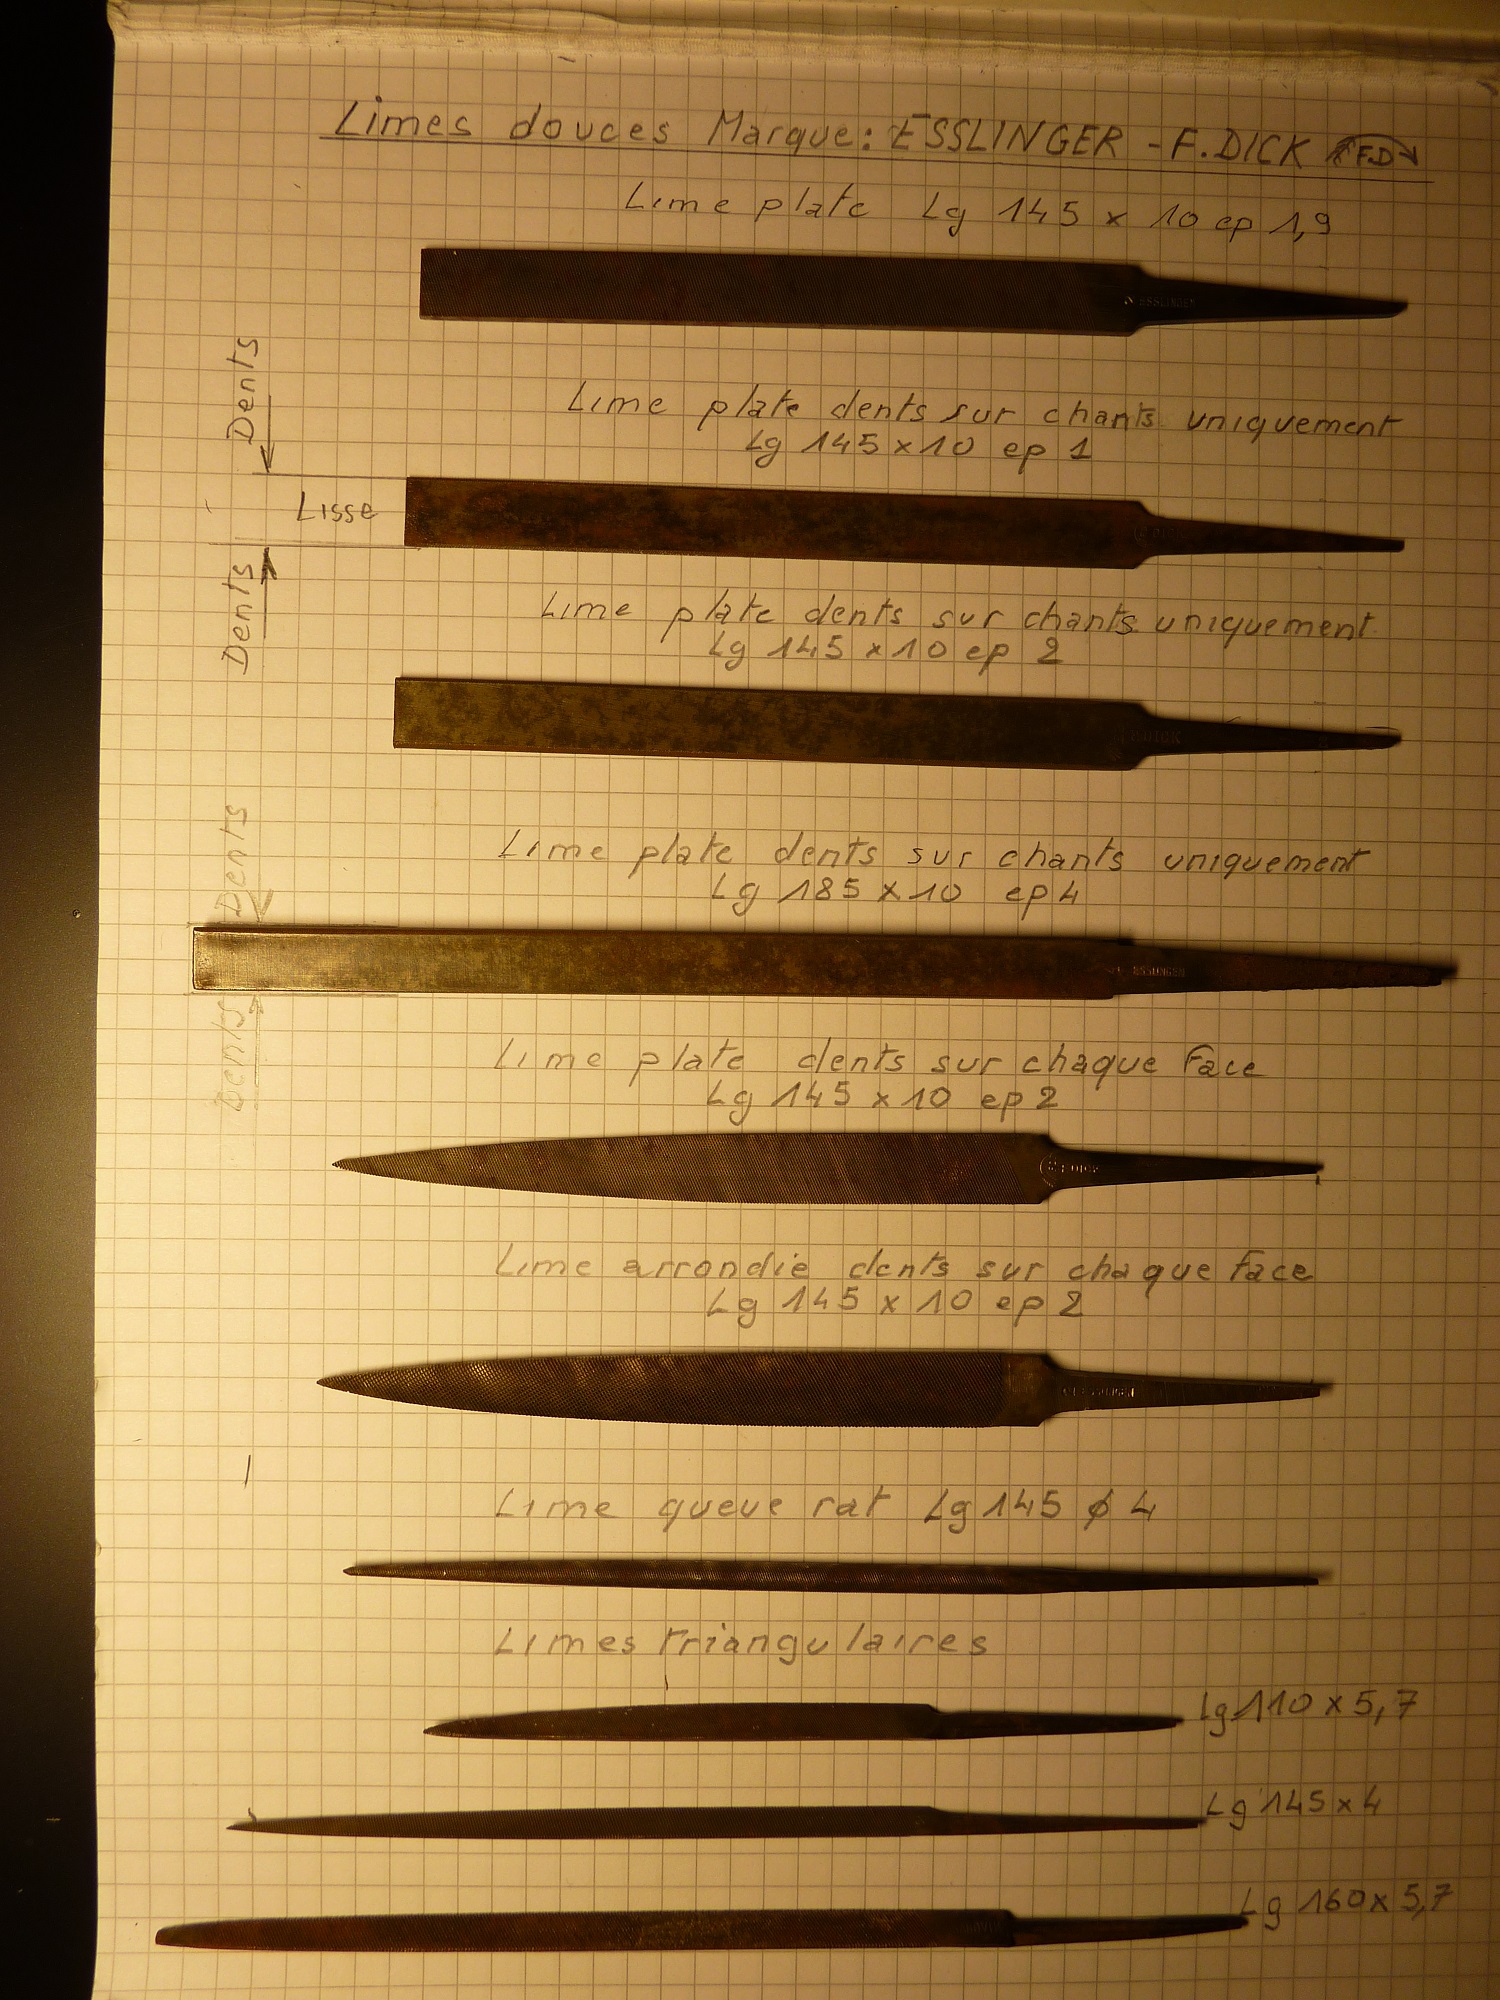 Limes douces Marque: ESSLINGER - F. DICK F.D
Lime plate Lg 145 x 10 ep 1,9
ESSLINGEN
Dents
Lime plate dents sur chants uniquement
Lg 145 x 10 ep 1
Lisse
DICK
Dents
Lime plate dents sur chants uniquement
Lg 145 x 10 ep 2
F. DICK
Dents
Lime plate dents sur chants uniquement
Lg 185 x 10 ep 4
ESSLINGEN
Dents
Lime plate dents sur chaque Face
Lg 145 x 10 ep 2
F. DICK
Lime arrondie dents sur chaque Face
Lg 145 x 10 ep 2
Lime queue rat Lg 145 ϕ 4
Limes triangulaires
Lg 110 x 5,7
Lg 145 x 4
Lg 160 x 5,7